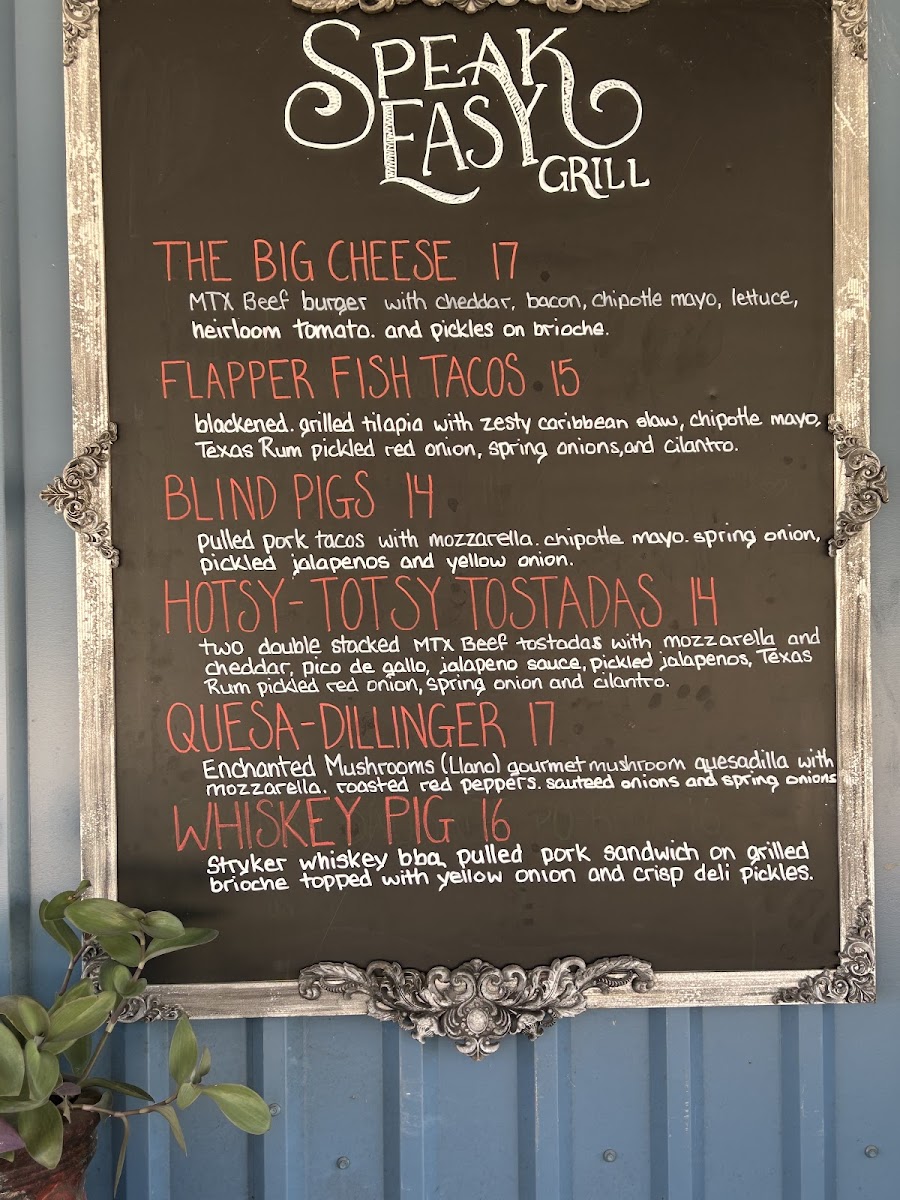 SPEAK
EASY
GRILL
THE BIG CHEESE 17
MTX Beef burger with cheddar, bacon, chipotle mayo, lettuce,
heirloom tomato. and pickles on brioche.
FLAPPER FISH TACOS 15
blackened. grilled tilapia with zesty caribbean slaw, chipotle mayo,
Texas Rum pickled red onion, spring onions, and cilantro.
BLIND PIGS 14
pulled pork tacos with mozzarella. chipotle mayo. spring onion,
pickled jalapenos and yellow onion.
HOTSY-TOTSY TOSTADAS 14
two double stacked MTX Beef tostadas with mozzarella and
cheddar, pico de gallo, jalapeno sauce, pickled jalapenos, Texas
Rum pickled red onion, spring onion and cilantro.
QUESA-DILLINGER 17
Enchanted Mushrooms (Llano) gourmet mushroom quesadilla with
mozzarella. roasted red peppers. sauteed onions and spring onions
WHISKEY PIG 16
Stryker whiskey bbq pulled pork sandwich on grilled
brioche topped with yellow onion and crisp deli pickles.